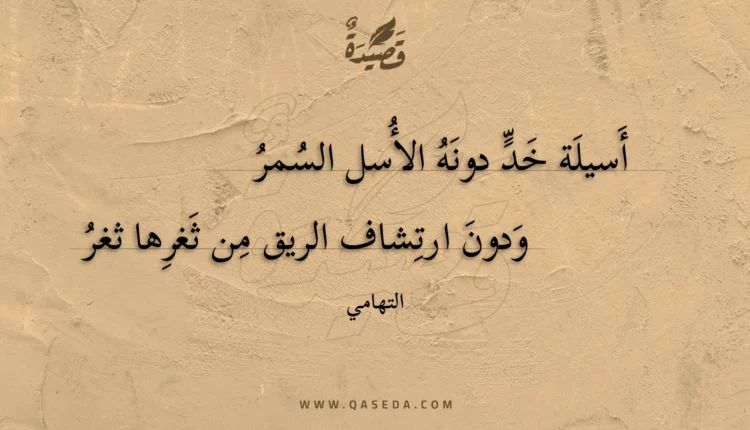 قَصِيْدَةٌ
أَسيلَة خَدٍّ دونَهُ الأُسل السُمرُ
وَدونَ ارتِشاف الريق مِن ثَغرِها ثغرُ
التهامي
WWW.QASEDA.COM